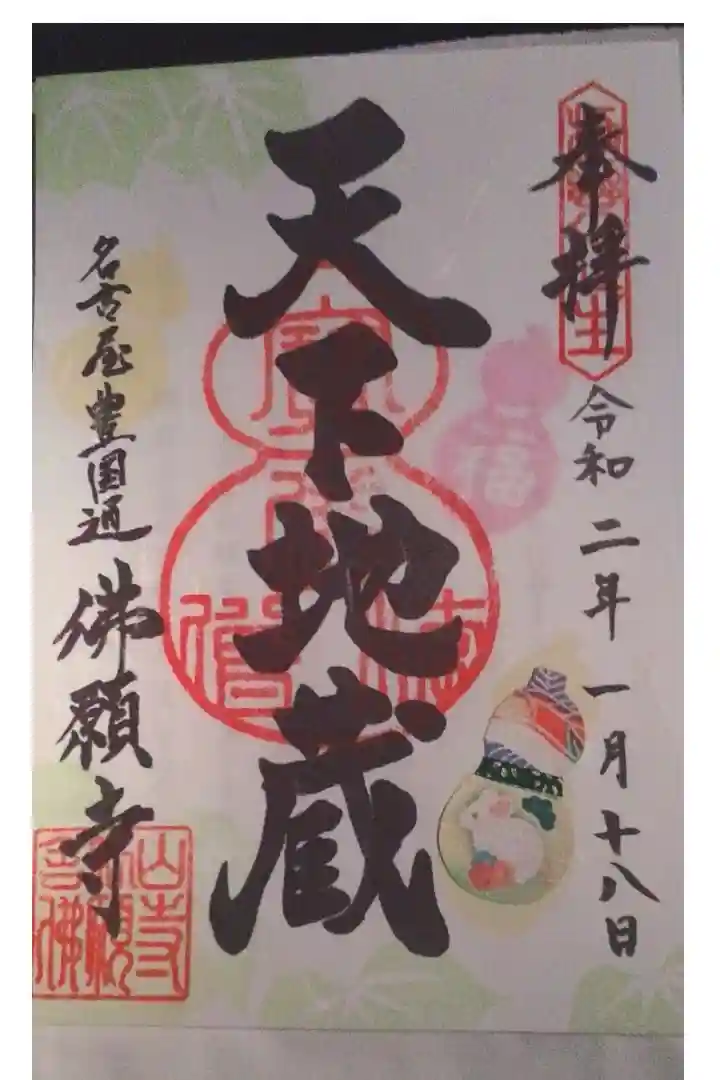 奉拝
令和二年一月十八日
天下地蔵
名古屋豊国通
佛願寺
福